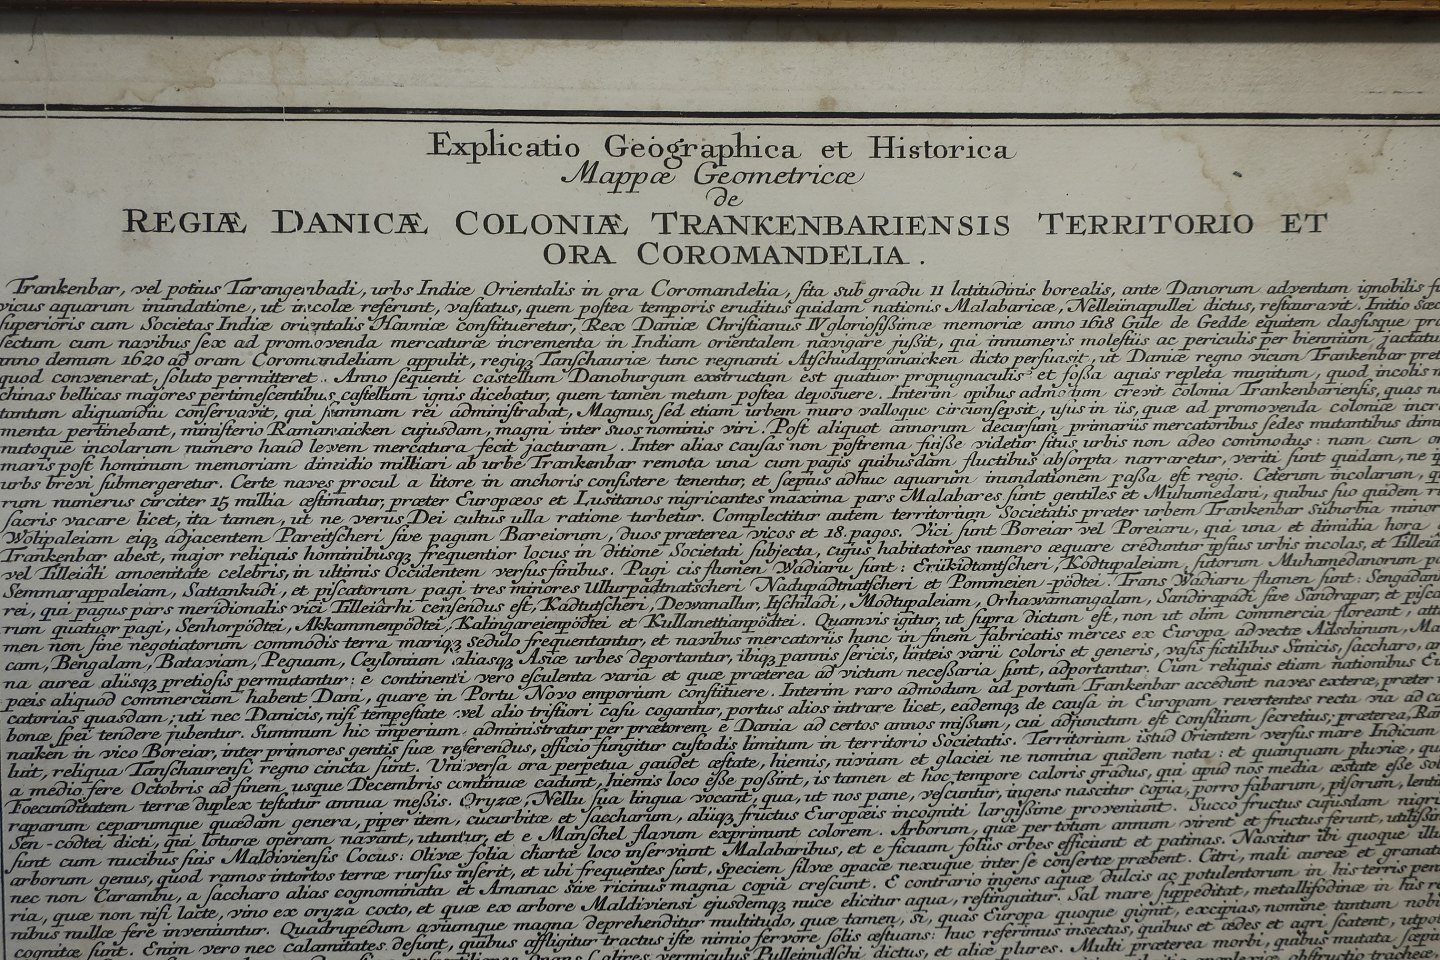 Explicatio Geographica et Historica
Mappæ Geometricæ
de
REGIÆ DANICÆ COLONIÆ TRANKENBARIENSIS TERRITORIO ET
ORA COROMANDELIA.
Trankenbar, vel potius Tarangenbadi, urbs Indiæ Orientalis in ora Coromandelia, sita sub gradu 11 latitudinis borealis, ante Danorum adventum ignobilis
vicus aquarum inundatione, ut incolæ referunt, vastatus, quem postea temporis eruditus quidam nationis Malabaricæ, Nelleünapullei dictus, restauravit. Initio
superioris cum Societas Indiæ orientalis Havniæ constitueretur, Rex Daniæ Christianus IV gloriosißimæ memoriæ anno 1618 Gule de Gedde equitem classisque
fectum cum navibus sex ad promovenda mercaturæ incrementa in Indiam orientalem navigare jußit, qui innumeris molestiis ac periculis per biennium jactatus
anno demum 1620 ad oram Coromandeliam appulit, regiq; Tanschauriæ tunc regnanti Atschudappanaicken dicto persuasit, ut Daniæ regno vicum Trankenbar
quod convenerat, soluto permitteret. Anno sequenti castellum Danoburgum exstructum est quatuor propugnaculis et foßa aquis repleta munitum, quod incolis
chinas bellicas majores pertimescentibus castellum ignis dicebatur, quem tamen metum postea deposuere. Interim opibus admodum crevit colonia Trankenbariensis, quas
tantum aliquandiu conservavit, qui summam rei administrabat, Magnus, sed etiam urbem muro valloque circumsepsit, usus in iis, quæ ad promovenda coloniæ
menta pertinebant, ministerio Ramanaicken cujusdam, magni inter suos nominis viri. Post aliquot annorum decursum primariis mercatoribus sedes mutantibus
mutoque incolarum numero haud levem mercatura fecit jacturam. Inter alias causas non postrema fuiße videtur situs urbis non adeo commodus: nam cum
maris post hominum memoriam dimidio milliari ab urbe Trankenbar remota una cum pagis quibusdam fluctibus absorpta narraretur, veriti sunt quidam, ne
urbs brevi submergeretur. Certe naves procul a litore in anchoris consistere tenentur, et sæpius adhuc aquarum inundationem paßa est regio. Ceterum incolarum,
rum numerus circiter 15 millia æstimatur, præter Europæos et Lusitanos nigricantes maxima pars Malabares sunt gentiles et Muhumedani, quibus suo quidem
sacris vacare licet, ita tamen, ut ne verus Dei cultus ulla ratione turbetur. Complectitur autem territorium Societatis præter urbem Trankenbar suburbia
Wolipaleiam eiq; adjacentem Pareitscheri sive pagum Bareiorum, duos præterea vicos et 18. pagos. Vici sunt Boreiar vel Poreiaru, qui una et dimidia hora
Trankenbar abest, major reliquis hominibusq; frequentior locus in ditione Societati subjecta, cujus habitatores numero æquare creduntur ipsius urbis incolas, et
vel Tilleiáli amoenitate celebris, in ultimis Occidentem versus finibus. Pagi cis flumen Wadiaru sunt: Eriikidtantscheri, Kodtupaleiam, sutorum Muhamedanorum
Semmarappaleiam, Sattankudi, et piscatorum pagi tres minores Ullurpadtnatscheri Nadupadtnatscheri et Pommeien-pödtei. Trans Wadiaru flumen sunt:
rei, qui pagus pars meridionalis vici Tilleiárhi censendus est, Kadtutscheri, Dewanallur, Itschiladi, Modtupaleiam, Orhawamangalam, Sandirapadi sive Sandrapar, et
rum quatuor pagi, Senhorpödtei, Akkammenpödtei, Kalingareienpödtei et Kullanettianpödtei. Quamvis igitur, ut supra dictum est, non ut olim commercia floreant,
men non sine negotiatorum commodis terra mariq; sedulo frequentantur, et navibus mercatoriis hunc in finem fabricatis merces ex Europa advectæ Adschinum,
cam, Bengalam, Bataviam, Peguam, Ceylonium aliasq; Asiæ urbes deportantur, ibiq; pannis sericis, linteis varii coloris et generis, vasis fictilibus Sinicis, saccharo,
na aurea aliisq; pretiosis permutantur: e continenti vero esculenta varia et quæ præterea ad victum neceßaria sunt, adportantur. Cum reliquis etiam nationibus
pæis aliquod commercium habent Dani, quare in Portu Novo emporium constituere. Interim raro admodum ad portum Trankenbar accedunt naves exteræ, præter
catorias quasdam; uti nec Danicis, nisi tempestate vel alio tristiori casu cogantur, portus alios intrare licet, eademq; de causa in Europam revertentes recta via ad
bonæ spei tendere jubentur. Summum hic imperium administratur per prætorem e Dania ad certos annos mißum, cui adjunctum est consilium secretius; præterea,
naiken in vico Boreiar, inter primores gentis suæ referendus, officio fungitur custodis limitum in territorio Societatis. Territorium istud Orientem versus mare Indicum
luit, reliqua Tanschaurensi regno cincta sunt. Universa ora perpetua gaudet æstate, hiemis, nivium et glaciei ne nomina quidem nota: et quanquam pluviæ,
a medio fere Octobris ad finem usque Decembris continuæ cadunt, hiemis loco eße poßint, is tamen et hoc tempore caloris gradus, qui apud nos media æstate eße
Foecunditatem terræ duplex testatur annua meßis. Oryzæ, Nellu sua lingua vocant, qua, ut nos pane, vescuntur, ingens nascitur copia, porro fabarum, pisorum,
raparum ceparumque quædam genera, piper item, cucurbitæ et saccharum, aliuq; fructus Europæis incogniti largißime proveniunt. Succo fructus cujusdam
Sen-códtei dicti, qui loturæ operam navant, utuntur, et e Manschel flavum exprimunt colorem. Arborum, quæ per totum annum virent et fructus ferunt,
sunt cum nucibus suis Maldiviensis Cocus: Olivæ folia chartæ loco inserviunt Malabaribus, et e ficuum foliis orbes efficiunt et patinas. Nascitur ibi quoque
arborum genus, quod ramos intortos terræ rursus inserit, et ubi frequentes sunt, speciem silvæ opacæ nexuque inter se consertæ præbent. Citri, mali aureæ et
nec non Carambu, a saccharo alias cognominata et Amanac sive ricinus magna copia crescunt. E contrario ingens aquæ dulcis ac potulentorum in his terris
ria, quæ non nisi lacte, vino ex oryza cocto, et quæ ex arbore Maldiviensi ejusdemq; nuce elicitur aqua, restinguitur. Sal mare suppeditat, metallifodinæ in his
nibus nullæ fere inveniuntur. Quadrupedum aviumque magna deprehenditur multitudo, quæ tamen, si, quas Europa quoque gignit, excipias, nomine tantum
cognitæ sunt. Enim vero nec calamitates desunt, quibus affligitur tractus iste nimio fervore solis æstuans: huc referimus insectas, quibus et ædes et agri scatent,
vermiculus Pulleinudschi dictus, et aliæ plures. Multi præterea morbi, quibus mutata